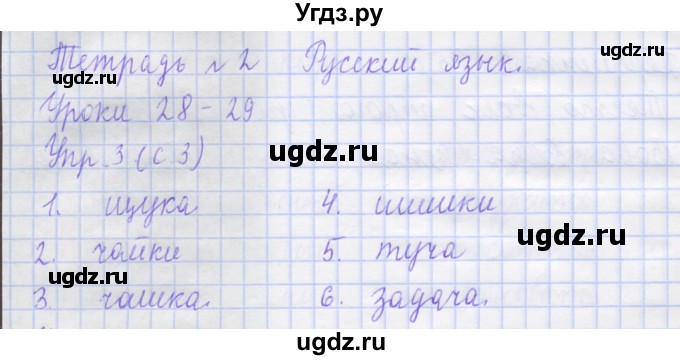 Угдз.ру
Тетрадь №2 Русский язык.
Уроки 28-29
Упр. 3 (с 3)
1. щука 4. шишки
2. чайки 5. туча
3. чашка. 6. задача.
ugdz.ru
ugdz.ru
ugdz.ru
ugdz.ru
ugdz.ru
ugdz.ru
ugdz.ru